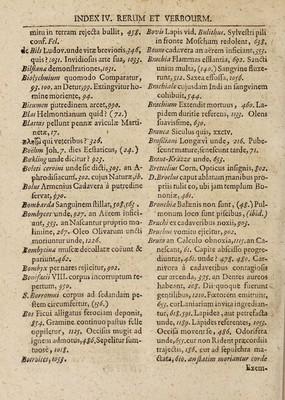 INDEX IV. RERUM ET VERBORUM.
mitu in terram rejecta bullit, 458.
conf. Fel.
de Bils Ludov. unde vitæ brevioris, 346,
quis? 1031. Invidiosis arte sua, 1033.
Bilsiana demonstrationes, 1031.
Biolychnium quomodo Comparatur,
93. 100. an Detur, 97. Extinguitur ho-
mine moriente, 94.
Biremum putredinem arcet, 990.
Blas Helmontianum quid? (72.)
Blattas pellunt pennæ aviculæ Marti-
neta, 17.
qui veteribus? 326.
Bœlem Joh. 7. dies Ecstaticus, (24.)
Burkling unde dicitur? 923.
Boleti cervini unde sic dicti, 301. an A-
phrodisiacum, 302. cujus Naturæ, ib.
Bolus Armenius Cadavera à putredine
servat, 630.
Bombarda Sanguinem stillat, 108, 565.
Bombyces unde, 227. an Aërem infici-
ant, 353. an Nascantur proprio mo-
limine, 267. Oleo Olivarum uncti
moriuntur unde, 1226.
Bombycina muscæ decollatæ coëunt &
pariunt, 462.
Bombyx per nates rejicitur, 902.
Bonifacii VIII. corpus incorruptum re-
pertum, 550.
S. Borromæus corpus ad sedandam pe-
stem circumfertur, (556.)
Bos Ficui alligatus ferociam deponit,
854. Gramine continuo pastus felle
oppletur, 1125. Occisus mugit ad
ignem admotus, 486. Sepelitur sum-
tuosè, 1018.
Bovis Lapis vid. Bulithus. Sylvestri pili
in fronte Moscham redolent, 638.
Boum cadavera an aërem inficiant, 353.
Bracchia Hammæs essantia, 690. Sancti
unius multa, (140.) Sanguine fluxe-
runt, 512. Saxea effossa, 1056.
Brachiale cujusdam Indi an sanguinem
cohibuit, 544.
Brachium Extendit mortuus, 460. La-
pidem duritie referens, 1133. Olens
suavissime, 630.
Branca Siculus quis, xxciv.
Brasiliani Longævi unde, 216. Pube-
scunt mature, senescunt tarde, 71.
Braut-Kräntz unde, 603.
Brettelius Corn. Opticus insignis, 702.
D. Broelus caput ablatum manibus pro-
priis tulit eo, ubi jam templum Bo-
nonie, 461.
Bronchia Balænis non sunt, (48.) Pul-
monum loco sunt piscibus, (ibid.)
Bruchi ex cadaveribus noxii, 903.
Bruchus vomitu ejicitur, 902.
Bruta an Calculo obnoxia, 1115. an Ca-
nescant, 61. Capite abscisso progre-
diuntur, 461. unde? 478. 480. Car-
nivora à cadaveribus contagiosis
cur arcenda, 395. an Dentes auroos
habeant, 208. Dii quoque fuerunt
gentilibus, 1210. Fœtorem emittunt,
657. cur Lunarium invita ingredian-
tur, 618. 591. Lapidea, aut petrefacta
unde, 1159. Lapides referentes, 1053.
Occisa moventur, 486. Odorifera
unde, 657. cur non Rident præcordiis
trajectis, 136. cur ad sepulchra ma-
ctata, 610. an statim moriantur corde
Exem-